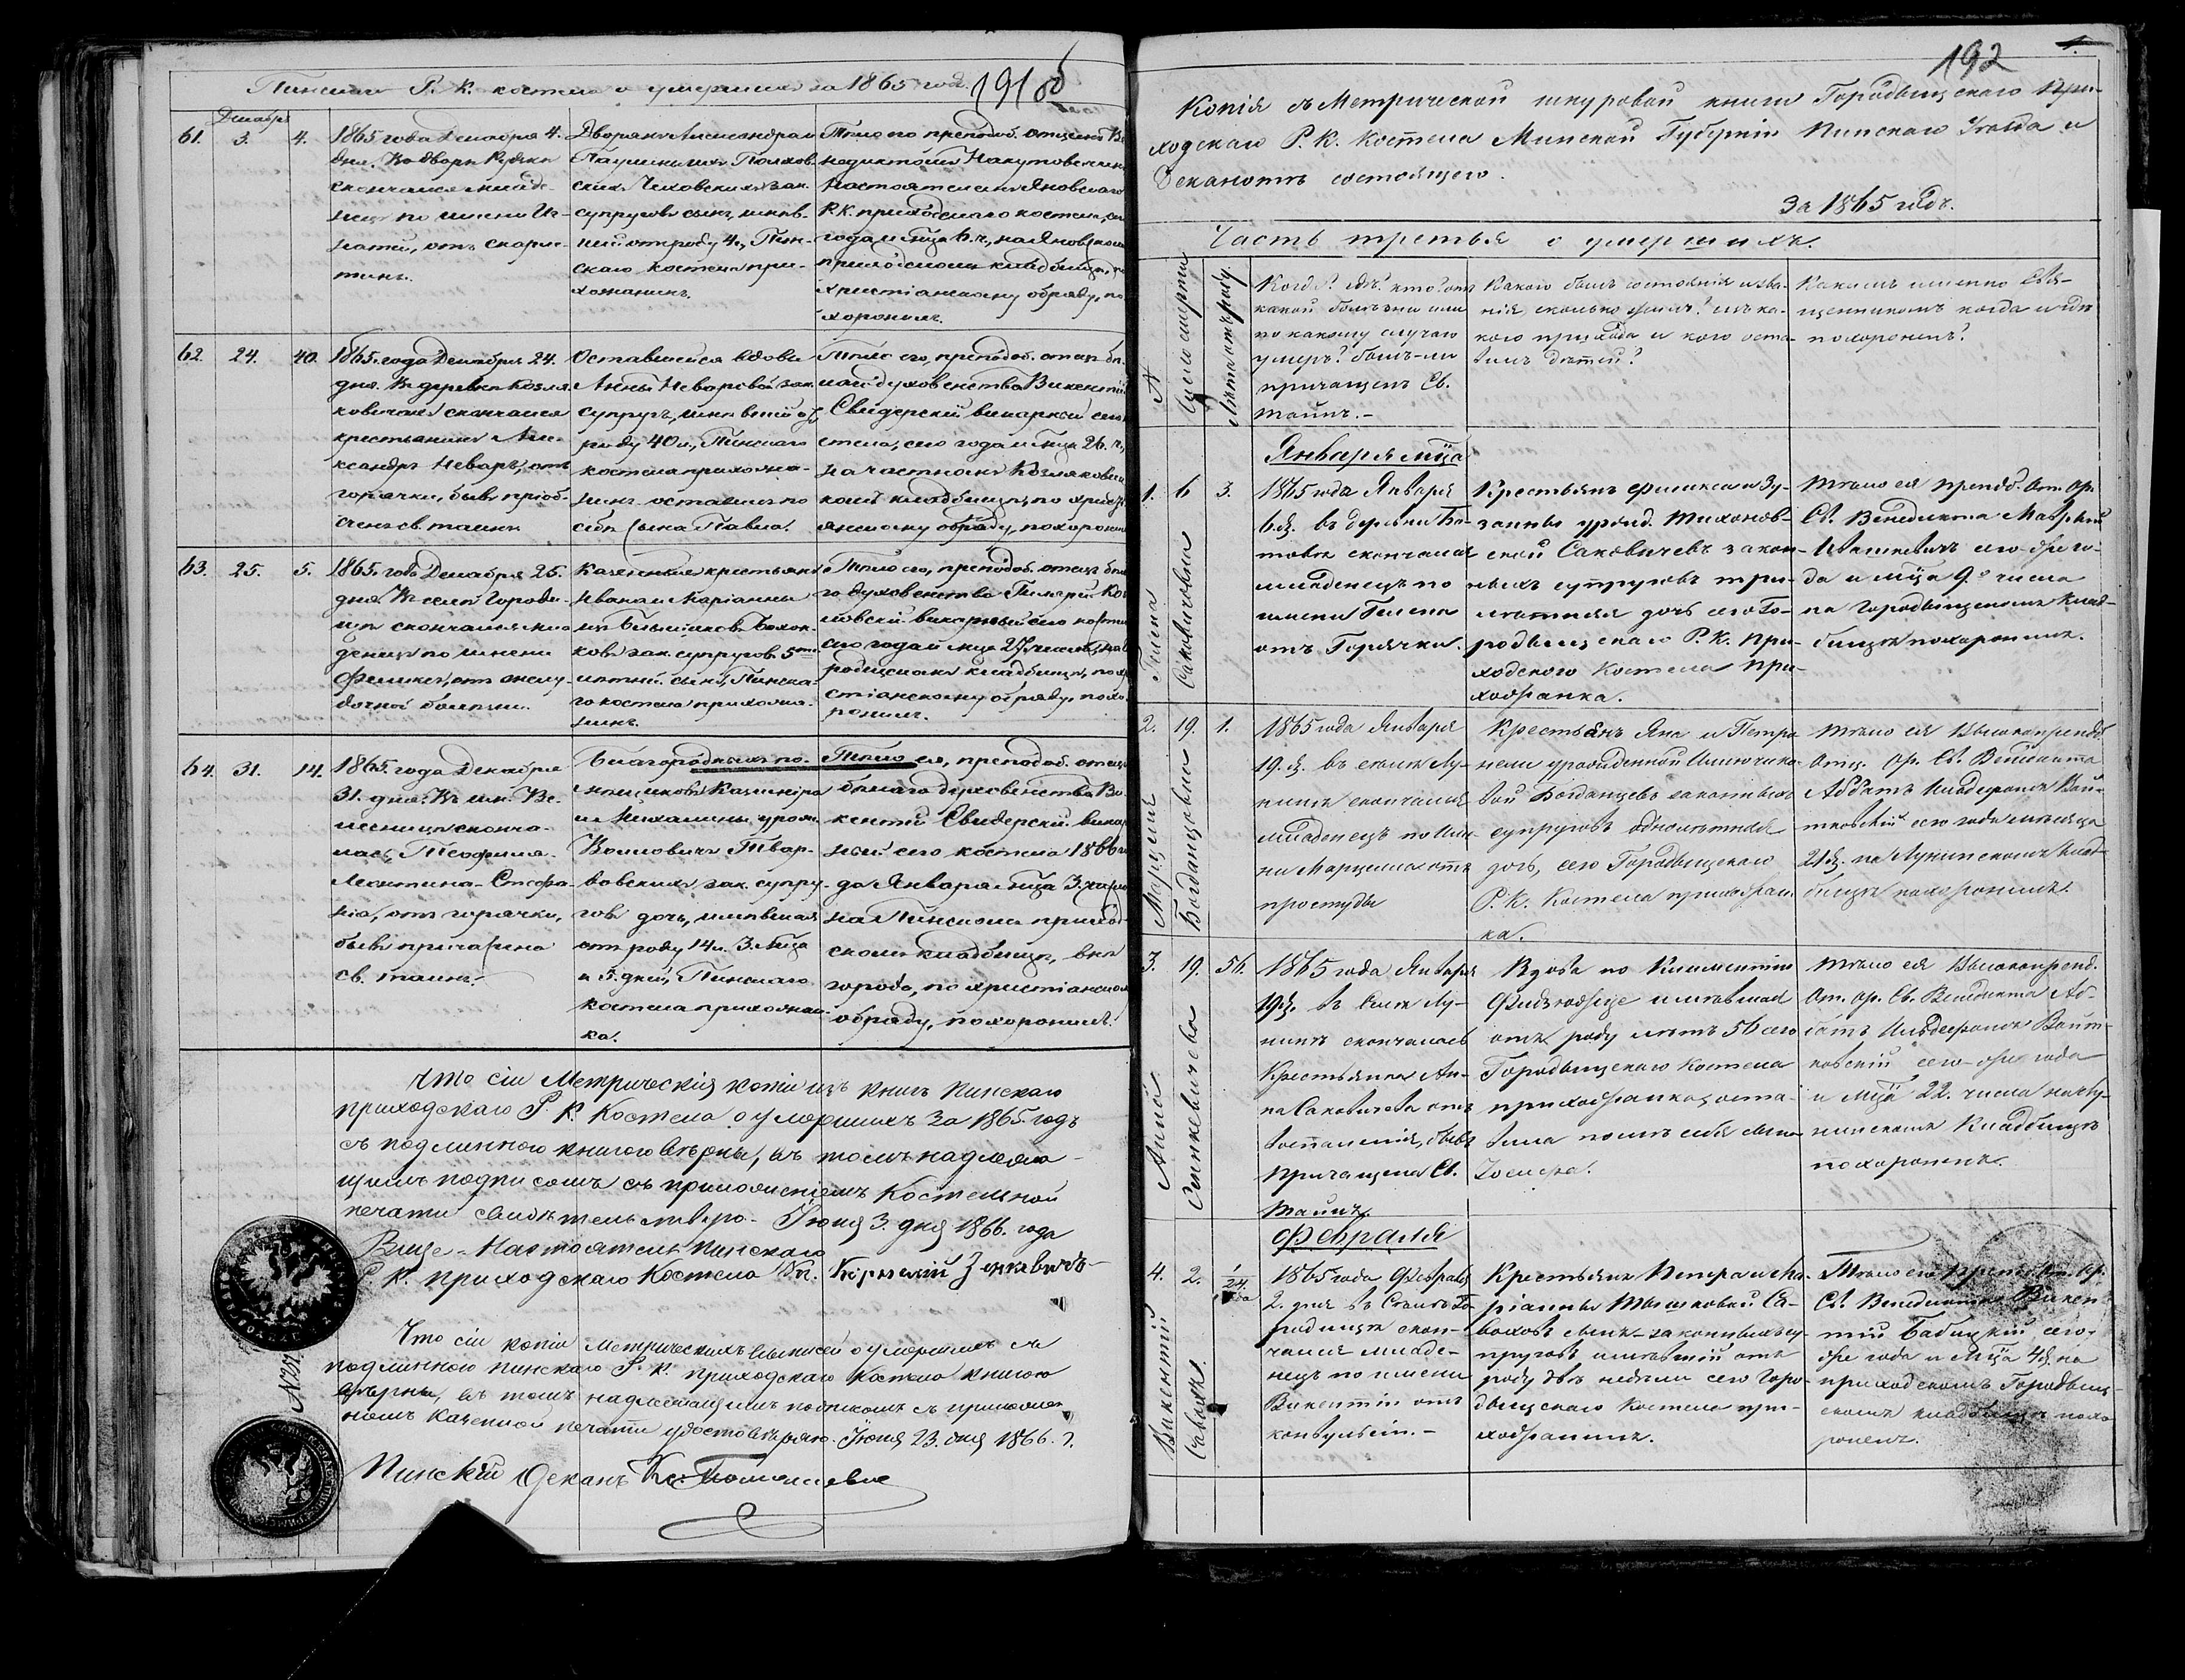 Пинскаго Р. К. костела о умершихъ за 1865 годъ. 191 об
Декабрь
61. 3. 4.
1865 года Декабря 4.
дня. Во дворѣ
скончался младе-
нецъ по имени Иг-
натій, отъ скарла-
тины.
Дворянъ Александра и
Паулины изъ
Чеховскихъ зак.
супруговъ сынъ, имѣв-
шій отъ роду 4 л., Пин-
скаго костела при-
хожанинъ.
Тѣло его преподоб. отецъ Бе-
недиктъ
Настоятель Яновскаго
Р.К. приходскаго костела, сего
года м-ца 6. ч., на Яновскомъ
приходскомъ кладбищѣ, по
христіанскому обряду, по-
хоронилъ.
62. 24. 40.
1865. года Декабря 24.
дня. Въ деревнѣ Козля-
ковичахъ скончался
крестьянинъ Але-
ксандръ Неваръ, отъ
горячки, бывъ пріоб-
щенъ св. таинъ
Оставшейся вдовы
Анны Неваровой зак.
супругъ, имѣвшій отъ
роду 40 л., Пинскаго
костела прихожа-
нинъ оставилъ по
себѣ сына Павла.
Тѣло его, преподоб. отецъ бѣ-
лаго духовенства Викентій
Свидерскій викарный сего ко-
стела, сего года м-ца 26. ч.,
на частномъ Козляковиц-
комъ кладбищѣ, по христі-
янскому обряду, похоронилъ
63. 25. 5.
1865. года Декабря 25.
дня. Въ селѣ Городи-
щѣ скончался мла-
денецъ по имени
Феликсъ, отъ желу-
дочной болѣзни.
Казенныхъ крестьянъ
Ивана и Маріанны
изъ
зак. супруговъ 5ти
лѣтній сынъ, Пинска-
го костела прихожа-
нинъ.
Тѣло его, преподоб. отецъ бѣла-
го духовенства
викарный сего костела
сего года и м-ца 27. числа, на Го-
родищскомъ кладбищѣ, по хри-
стіанскому обряду, похо-
ронилъ.
64. 31. 14.
1865. года Декабря
31. дня. Въ им. Ве-
лесницѣ сконча-
лась Теофилія-
Леонтина-Стефа-
нія, отъ горячки,
бывъ причащена
св. таинъ.
Благородныхъ по-
мѣщиковъ Казимира
и Михалины урож.
зак. супру-
говъ дочь, имѣвшая
отъ роду 14 л. 3. м-ца
и 5. дней, Пинскаго
костела прихожан-
ка.
Тѣло ея, преподоб. отецъ
бѣлаго духовенства Ви-
кентій Свидерскій викар-
ный сего костела 1866 го-
да Января м-ца 3. числа
на Пинскомъ приход-
скомъ кладбищѣ, внѣ
города, по христіанскому
обряду, похоронилъ.
Что сіи Метрическія копіи изъ книгъ Пинскаго
приходскаго Р. К. Костела о умершихъ за 1865. годъ
съ подлинною книгою вѣрны, въ томъ надлежа-
щимъ подписомъ съ приложеніемъ Костельной
печати свидѣтельствую. Іюня 3. дня 1866. года
Вице-Настоятель Пинскаго
Р. К. приходскаго Костела Кс.
Что сіи копіи Метрическихъ выписей о умершихъ съ
подлинною Пинскаго Р. К. приходскаго Костела книгою
вѣрны, въ томъ надлежащимъ подписомъ съ приложен-
номъ Казенной печати удостовѣряю. Іюня 23. дня 1866. г.
Пинскій Деканъ Кс.
192 1.
Копія съ Метрической шнуровой книги Городыщскаго При-
ходскаго Р. К. Костела Минской Губерніи Пинскаго Уѣзда и
Деканатѣ состоящего.
За 1865 годъ.
Часть третья о умершихъ.
№
Число смерти
Лѣта отъ роду.
Когда? гдѣ? кто? отъ
какой болѣзни или
по какому случаю
умеръ? былъ-ли
причащенъ Св.
таинъ.-
Какого былъ состоянія и зва-
нія, сколько жилъ? изъ ка-
кого прихода и кого оста-
вилъ дѣтей?
Какимъ именно Свя-
щенникомъ когда и гдѣ
похороненъ?
Января м-ца
1. 6 3.
Гелена
Саковичовна
1865 года Января
6 д. въ деревни Бо-
товѣ скончалась
младенецъ по
имени Гелена
отъ Горячки.
Крестьянъ Феликса и Зу-
занны урожд. Тихонов-
ской Саковичевъ закон-
ныхъ супруговъ трех-
лѣтняя дочь сего Го-
родыщскаго Р. К. При-
ходского Костела При-
хожанка.
Тѣло ея преподоб. От. Ор.
Св. Венедикта
его-же го-
да и м-ца 9.º числа
на Городыщскомъ Клад-
бищѣ похоронилъ.
2. 19. 1.
Марцеля
Богданцевна
1865 года Января
19. д. въ селѣ Лу-
нинѣ скончался
младенецъ по име-
ни Марцеля отъ
простуды
Крестьянъ Яна и Петро-
нели урожденной
Богданцевъ законныхъ
супруговъ однолѣтняя
дочь, сего Городыщскаго
Р. К. Костела прихожан-
ка.
Тѣло ея Высокопреподоб.
Отц. Ор. Св. Венедикта
Аббатъ Ильдефонсъ Вой-
тковскій сего года мѣсяца
21 д. на Лунинскомъ клад-
бищѣ похоронилъ.
3. 19. 56.
Анна
Сенкевичева
1865 года Января
19 д. въ Селѣ Лу-
нинѣ скончалась
Крестьянка Ан-
на отъ
воспаленія, бывъ
причащена Св.
Таинъ.
Вдова по Климентіи
имѣвшая
отъ роду лѣтъ 56 сего
Городыщскаго Костела
прихожанка, оста-
вила послѣ себя сына
Іосифа.
Тѣло ея Высокопреп.
От. Ор. Св. Венедикта Аб-
батъ Ильдефонсъ Войт-
ковскій сего-же года
и м-ца 22. числа на Лу-
нинскомъ Кладбищѣ
похоронилъ.
Февраля
4. 2.
Викентій
1865 года Февраля
2. дня въ Селѣ Го-
родищѣ скон-
чался младе-
нецъ по имени
Викентій отъ
конвульсіи.-
Крестьянъ Петра и Ма-
ріанны
сынъ законныхъ су-
пруговъ имѣвшій отъ
роду двѣ недѣли сего Горо-
дыщскаго Костела при-
хожанинъ.
Тѣло его Преподоб. От. Ор.
Св. Венедикта Викен-
тій Бабицкій сего-
же года и М-ца 4 д. на
приходскомъ Городыщ-
скомъ кладбищѣ похо-
ронилъ.